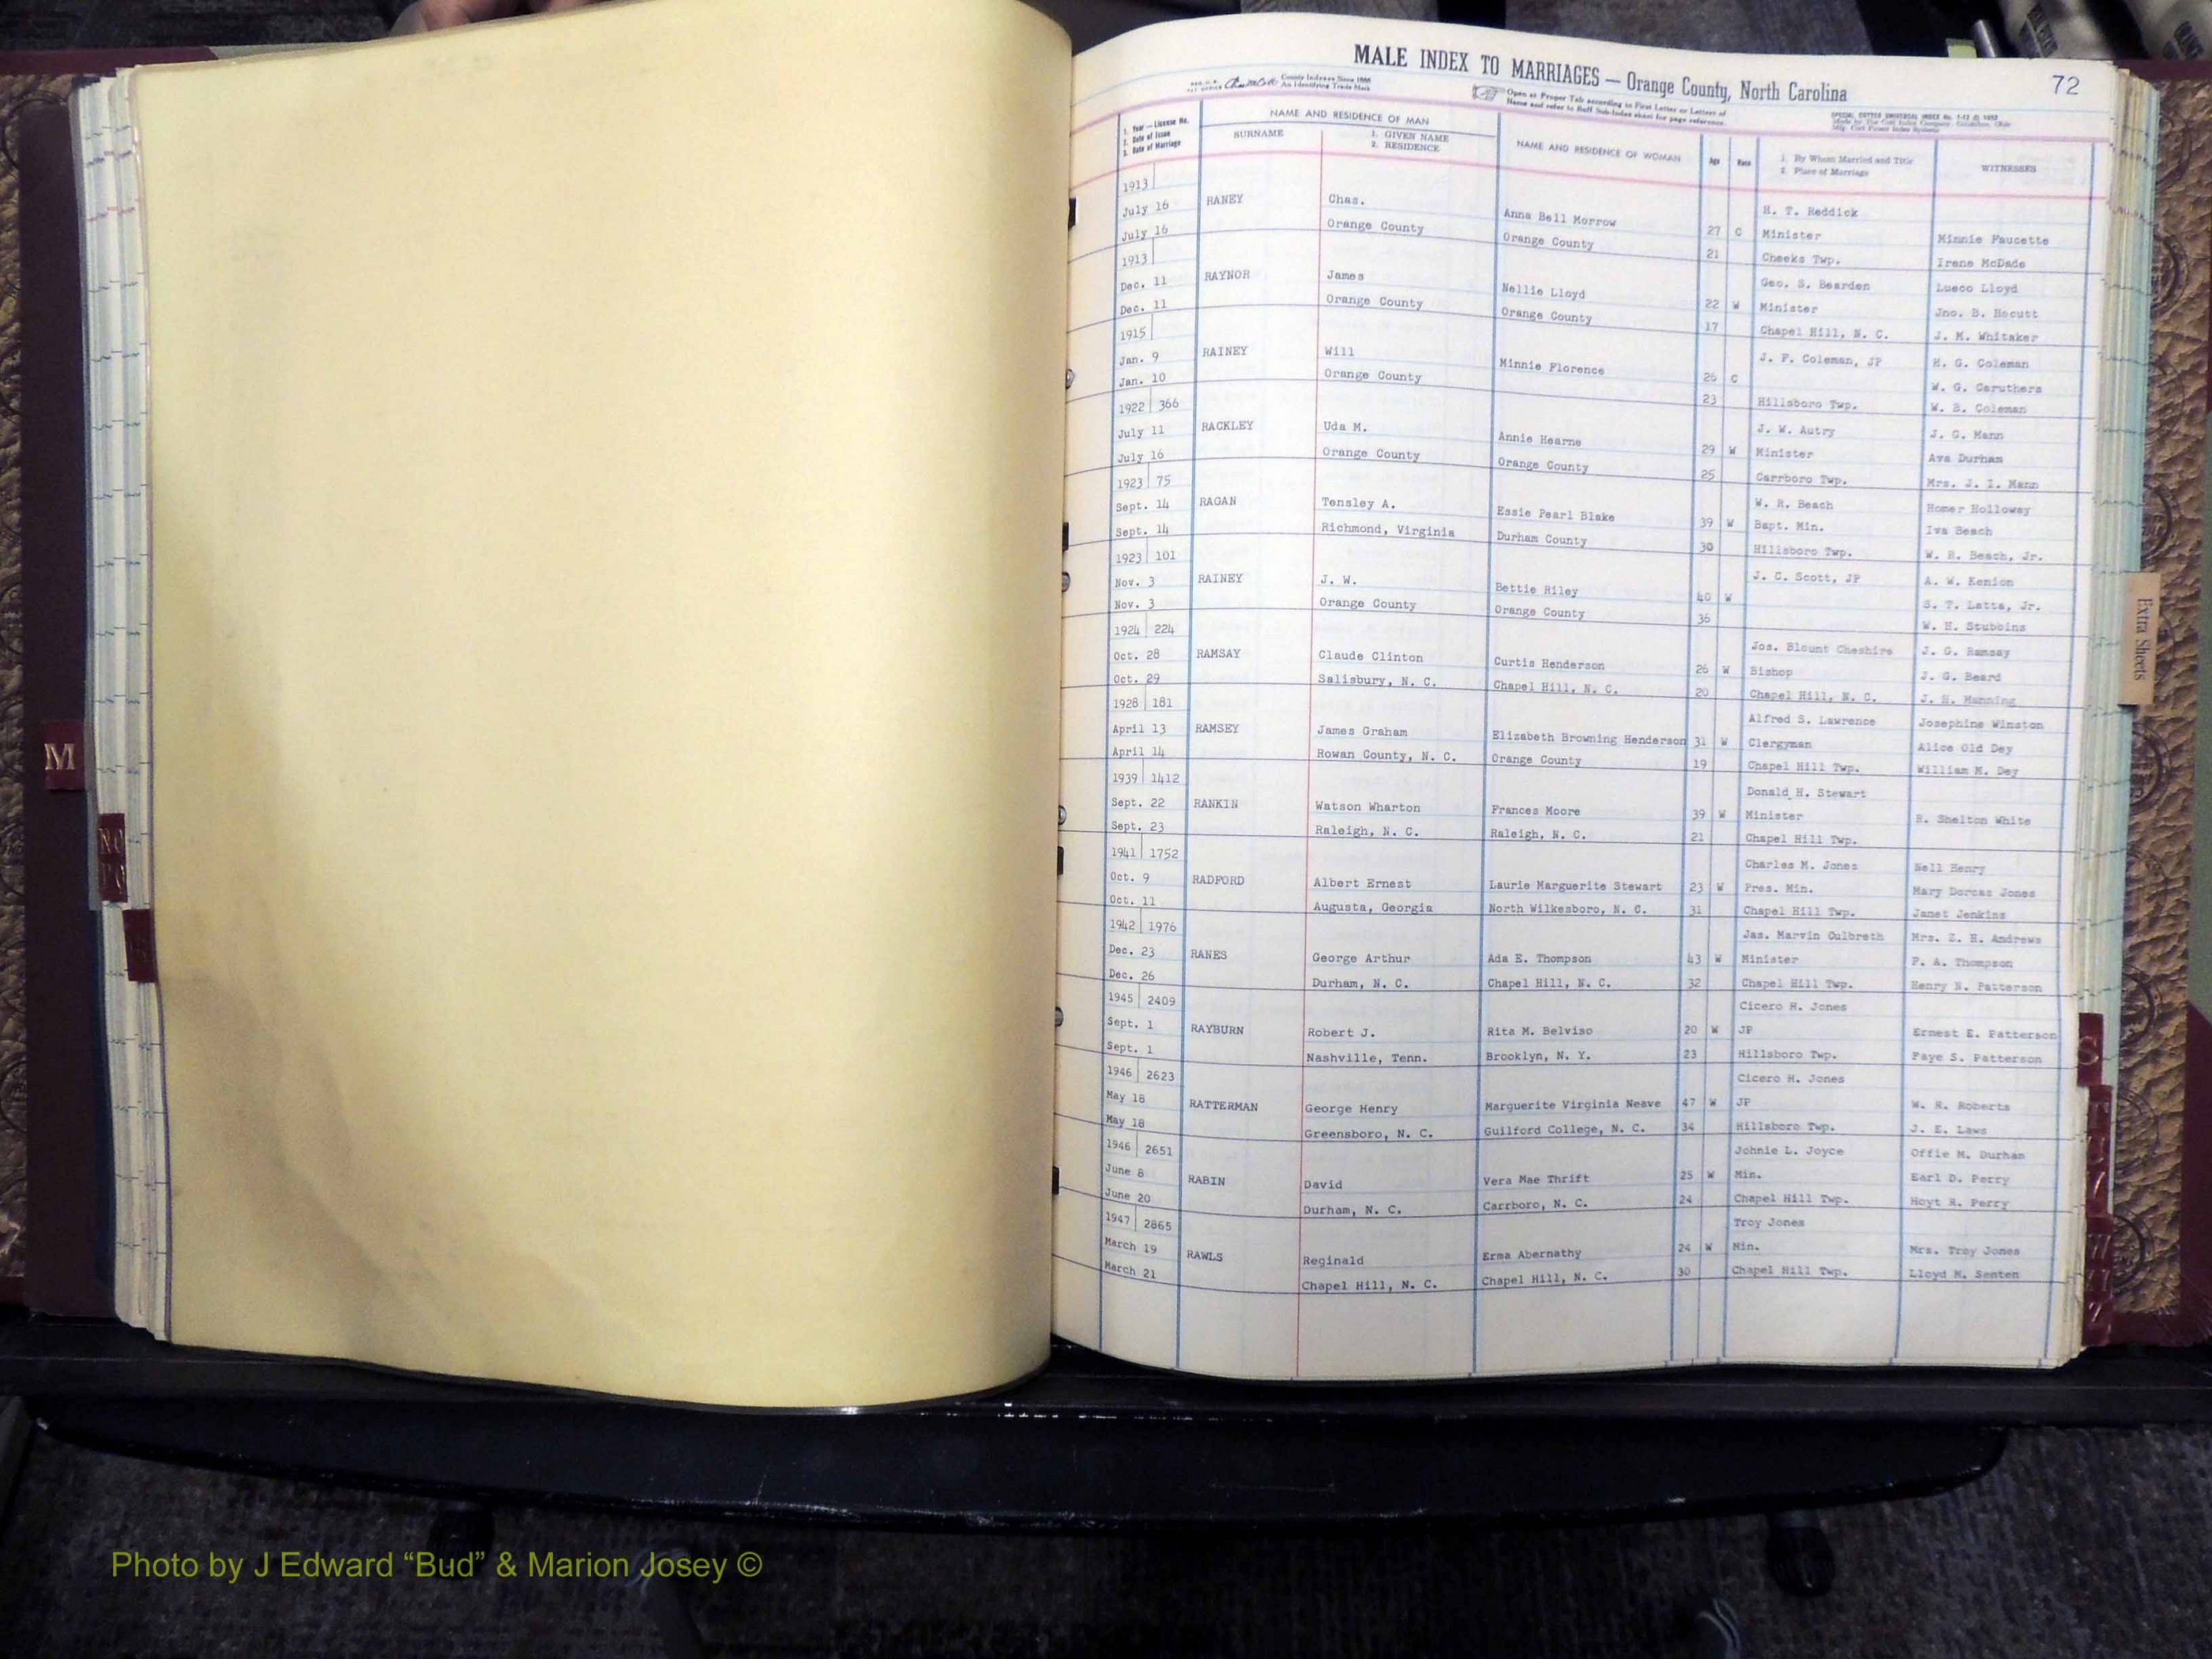 MALE INDEX TO MARRIAGES — Orange County, North Carolina
72
County Indexes Since 1888
An Identifying Trade Mark
Open at Proper Tab according to First Letter or Letters of
Name and refer to Buff Sub-Index sheet for page reference.
1. Year — License No.
2. Date of Issue
3. Date of Marriage
NAME AND RESIDENCE OF MAN
SURNAME
1. GIVEN NAME
2. RESIDENCE
NAME AND RESIDENCE OF WOMAN
Age
Race
1. By Whom Married and Title
2. Place of Marriage
WITNESSES
1913
July 16 RANEY Chas. Anna Bell Morrow H. T. Reddick
July 16 Orange County Orange County 27 C Minister Minnie Faucette
21 Cheeks Twp. Irene McDade
1913 Geo. S. Bearden Lueco Lloyd
Dec. 11 RAYNOR James Nellie Lloyd 22 W Minister Jno. B. Hocutt
Dec. 11 Orange County Orange County 17 Chapel Hill, N. C. J. M. Whitaker
1915 J. F. Coleman, JP H. G. Coleman
Jan. 9 RAINEY Will Minnie Florence 26 C W. G. Caruthers
Jan. 10 Orange County 23 Hillsboro Twp. W. B. Coleman
1922 366 J. W. Autry J. G. Mann
July 11 RACKLEY Uda M. Annie Hearne 29 W Minister Ava Durham
July 16 Orange County Orange County 25 Carrboro Twp. Mrs. J. I. Mann
1923 75 W. R. Beach Homer Holloway
Sept. 14 RAGAN Tensley A. Essie Pearl Blake 39 W Bapt. Min. Iva Beach
Sept. 14 Richmond, Virginia Durham County 30 Hillsboro Twp. W. R. Beach, Jr.
1923 101 J. C. Scott, JP A. W. Kenion
Nov. 3 RAINEY J. W. Bettie Riley 40 W S. T. Latta, Jr.
Nov. 3 Orange County Orange County 36 W. H. Stubbins
1924 224 Jos. Blount Cheshire J. G. Ramsay
Oct. 28 RAMSAY Claude Clinton Curtis Henderson 26 W Bishop J. G. Beard
Oct. 29 Salisbury, N. C. Chapel Hill, N. C. 20 Chapel Hill, N. C. J. H. Manning
1928 181 Alfred S. Lawrence Josephine Winston
April 13 RAMSEY James Graham Elizabeth Browning Henderson 31 W Clergyman Alice Old Dey
April 14 Rowan County, N. C. Orange County 19 Chapel Hill Twp. William M. Dey
1939 1412 Donald H. Stewart
Sept. 22 RANKIN Watson Wharton Frances Moore 39 W Minister R. Shelton White
Sept. 23 Raleigh, N. C. Raleigh, N. C. 21 Chapel Hill Twp.
1941 1752 Charles M. Jones Nell Henry
Oct. 9 RADFORD Albert Ernest Laurie Marguerite Stewart 23 W Pres. Min. Mary Dorcas Jones
Oct. 11 Augusta, Georgia North Wilkesboro, N. C. 31 Chapel Hill Twp. Janet Jenkins
1942 1976 Jas. Marvin Culbreth Mrs. Z. H. Andrews
Dec. 23 RANES George Arthur Ada E. Thompson 43 W Minister P. A. Thompson
Dec. 26 Durham, N. C. Chapel Hill, N. C. 32 Chapel Hill Twp. Henry N. Patterson
1945 2409 Cicero H. Jones
Sept. 1 RAYBURN Robert J. Rita M. Belviso 20 W JP Ernest E. Patterson
Sept. 1 Nashville, Tenn. Brooklyn, N. Y. 23 Hillsboro Twp. Faye S. Patterson
1946 2623 Cicero H. Jones
May 18 RATTERMAN George Henry Marguerite Virginia Neave 47 W JP W. R. Roberts
May 18 Greensboro, N. C. Guilford College, N. C. 34 Hillsboro Twp. J. E. Laws
1946 2651 Johnie L. Joyce Offie M. Durham
June 8 RABIN David Vera Mae Thrift 25 W Min. Earl D. Perry
June 20 Durham, N. C. Carrboro, N. C. 24 Chapel Hill Twp. Hoyt R. Perry
1947 2865 Troy Jones
March 19 RAWLS Reginald Erma Abernathy 24 W Min. Mrs. Troy Jones
March 21 Chapel Hill, N. C. Chapel Hill, N. C. 30 Chapel Hill Twp. Lloyd M. Senten
Extra Sheets
M
S
Photo by J Edward “Bud” & Marion Josey ©